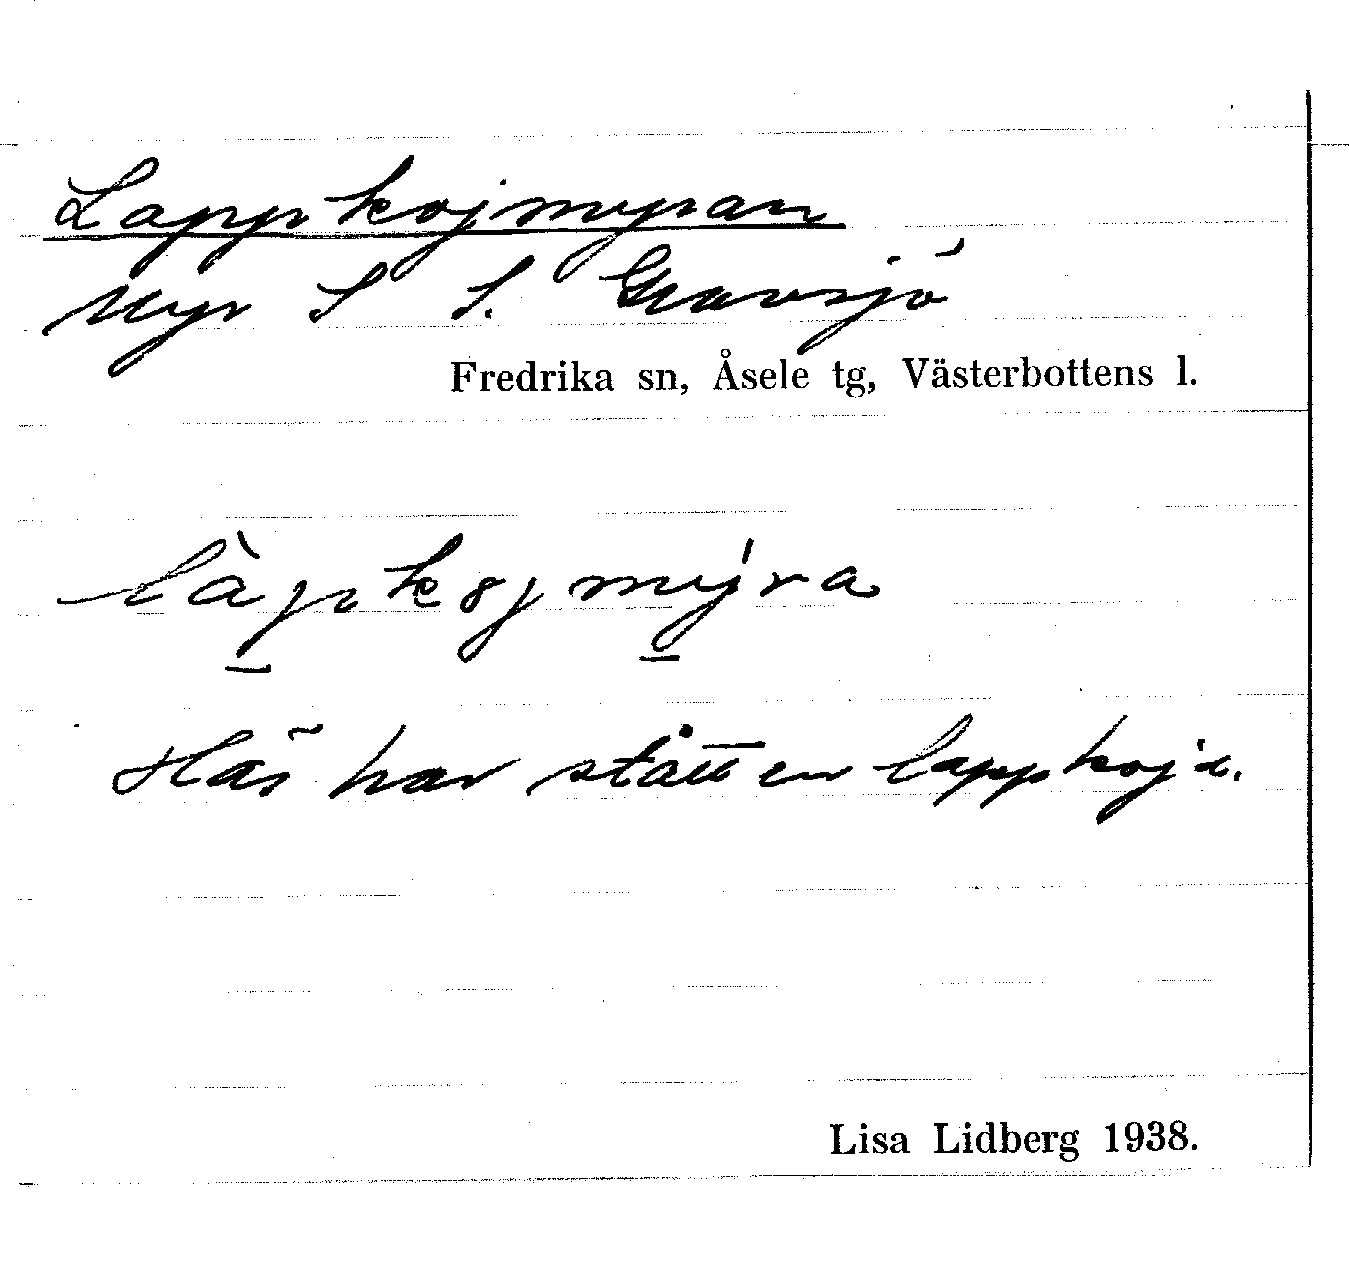 Lappkojmyran
Myr S S. Gravsjö
Fredrika sn, Åsele tg, Västerbottens l.
làpkojmýra
Här har stått en lappkoja.
Lisa Lidberg 1938.